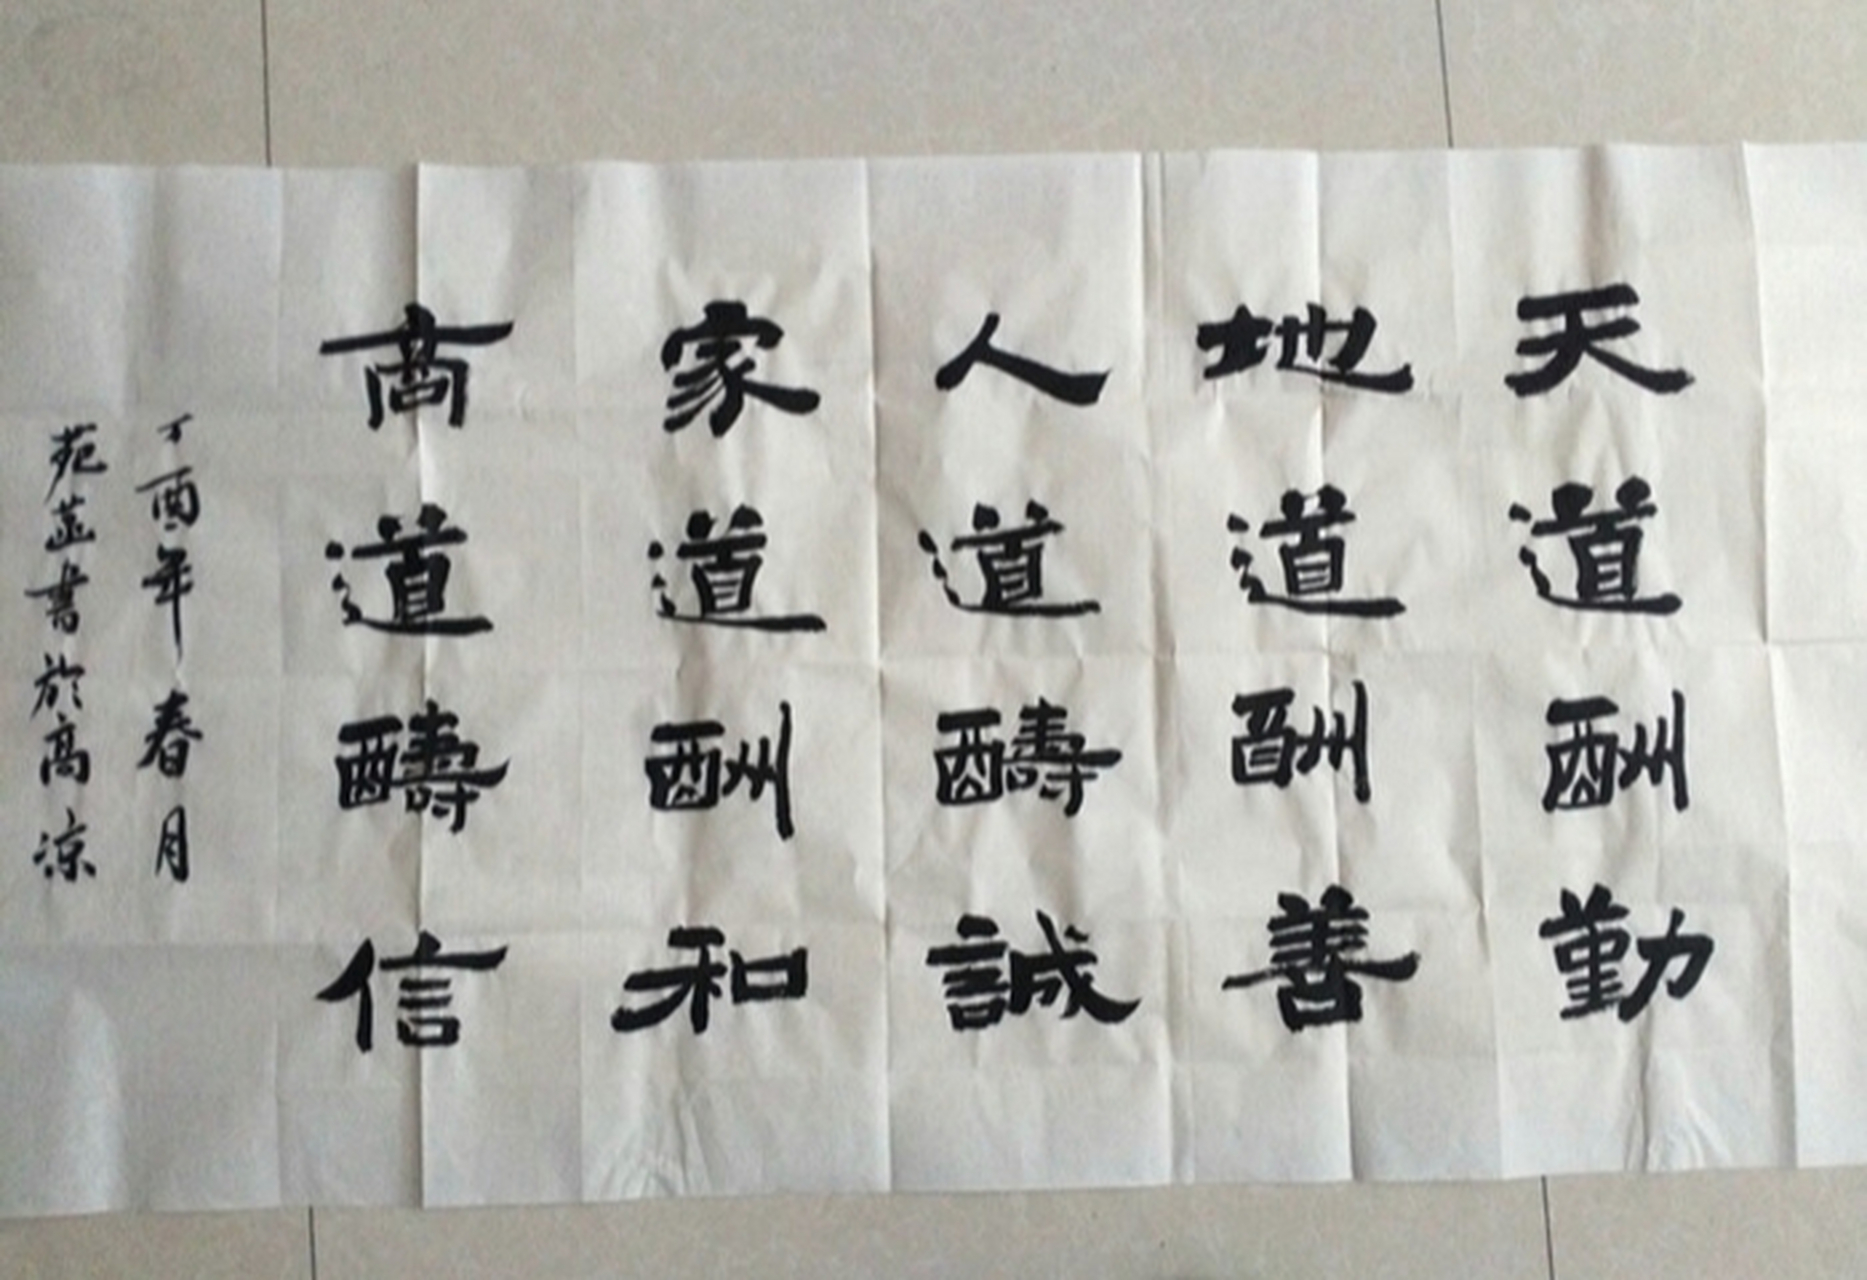 天道酬勤
地道酬善
人道醻誠
家道酬和
商道醻信
丁酉年春月
苑莁書於高涼